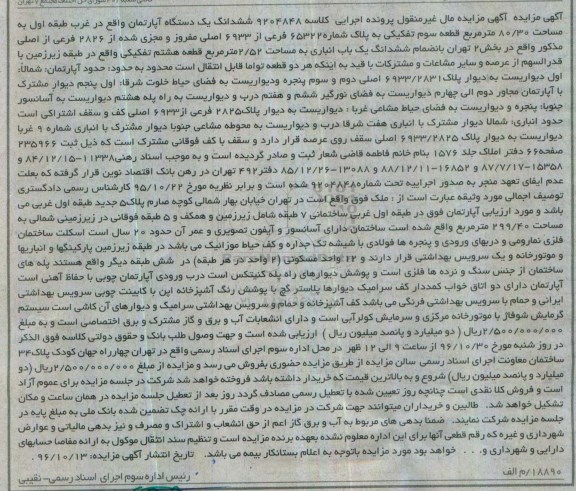 آگهی مزایده آگهی مزایده مال غیرمنقول پرونده اجرایی کلاسه ۹۲۰۴۸۴۸ ششدانگ یک دستگاه آپارتمان واقع در غرب طبقه اول به
مساحت ۸۰/۳۰ مترمربع قطعه سوم تفکیکی به پلاک شماره ۶۵۳۲۲ فرعی از ۶۹۳۳ اصلی مفروز و مجزی شده از ۲۸۲۶ فرعی از اصلی
مذکور واقع در بخش ۲ تهران بانضمام ششدانگ یک باب انباری به مساحت ۲/۵۲ مترمربع قطعه هشتم تفکیکی واقع در طبقه زیرزمین با
قدرالسهم از عرصه و سایر مشاعات و مشترکات با قید به اینکه هر دو قطعه تواما قابل انتقال است محدود به حدود: حدود آپارتمان: شمالا:
اول دیواریست به دیوار پلاک ۶۹۳۳/۲۸۳۱ اصلی دوم و سوم پنجره ودیواریست به فضای حیاط خلوت شرقا: اول پنجم دیوار مشترک
با آپارتمان مجاور دوم الی چهارم دیواریست به فضای نورگیر ششم و هفتم درب و دیواریست به راه پله هشتم دیواریست به آسانسور
جنوبا: پنجره و دیواریست به فضای حیاط مشاعی غربا : دیواریست به دیوار پلاک ۲۸۲۵ فرعی از ۶۹۳۳ اصلی کف و سقف اشتراکی است
حدود انباری: شمالا دیوار مشترک با انباری هفت شرقا درب و دیواریست به محوطه مشاعی جنوبا دیوار مشترک با انباری شماره ۹ غربا
دیواریست به دیوار پلاک ۶۹۳۳/۲۸۲۵ اصلی سقف روی عرصه قرار دارد و سقف با کف فوقانی مشترک است که ذیل ثبت ۲۳۵۹۶۶
صفحه ۶۶ دفتر املاک جلد ۱۵۷۶ بنام خانم فاطمه قاضی شعار ثبت و صادر گردیده است و به موجب اسناد رهنی ۱۱۳۳۸-۸۴/۱۲/۱۵ و
۱۵۳۵۸-۸۷/۷/۱۷ و ۱۶۸۵۲-۸۸/۱۲/۱۱ و ۱۳۰۸۸-۸۵/۱۲/۲۶ دفتر ۴۹۲ تهران در رهن بانک اقتصاد نوین قرار گرفته که بعلت
عدم ایفای تعهد منجر به صدور اجراییه تحت شماره ۹۲۰۴۸۴۸ شده است و برابر نظریه مورخ ۹۵/۱۰/۲۲ کارشناس رسمی دادگستری
توصیف اجمالی مورد وثیقه عبارت است از : ملک فوق واقع است در تهران خیابان بهار شمالی کوچه صارم پلاک ۵ جدید طبقه اول غربی می
باشد و مورد ارزیابی آپارتمان فوق در طبقه اول غربی ساختمانی ۷ طبقه شامل زیرزمین و همکف و ۵ طبقه فوقانی در زیرزمینی شمالی به
مساحت ۲۹۹/۴۰ مترمربع واقع شده است ساختمان دارای آسانسور و آیفون تصویری و عمر آن حدود ۲۰ سال است اسکلت ساختمان
فلزی نمارومی و دربهای ورودی و پنجره ها فولادی با شیشه تک جداره و کف حیاط موزائیک می باشد در طبقه زیرزمین پارکینگها و انباریها
و موتورخانه و یک سرویس بهداشتی قرار دارند و ۱۲ واحد مسکونی (۲ واحد در هر طبقه) در شش طبقه دیگر واقع هستند پله های
ساختمان از جنس سنگ و نرده ها فلزی است و پوشش دیوارهای راه پله کنیتکس است درب ورودی آپارتمان چوبی با حفاظ آهنی است
آپارتمان دارای دو اتاق خواب کمددار کف سرامیک دیوارها پلاستر گچ با پوشش رنگ آشپزخانه اپن با کابینت چوبی سرویس بهداشتی
ایرانی و حمام با سرویس بهداشتی فرنگی می باشد کف آشپزخانه و حمام و سرویس بهداشتی سرامیک و دیوارهای آن کاشی است سیستم
گرمایش شوفاژ با موتورخانه مرکزی و سرمایش کولرآبی است و دارای انشعابات آب و برق و گاز مشترک و برق اختصاصی است و به مبلغ
۲/۵۰۰/۰۰۰/۰۰۰ریال ( دو میلیارد و پانصد میلیون ریال ) ارزیابی شده است و جهت وصول طلب بانک و حقوق دولتی کلاسه فوق الذکر
در روز شنبه مورخ ۹۶/۱۰/۳۰ از ساعت ۹ الی ۱۲ ظهر در محل اداره سوم اجرای اسناد رسمی واقع در تهران چهارراه جهان کودک پلاک ۳۴
ساختمان معاونت اجرای اسناد رسمی سالن مزایده از طریق مزایده حضوری بفروش می رسد و مزایده از مبلغ ۲/۵۰۰/۰۰۰/۰۰۰ریال (دو
میلیارد و پانصد میلیون ریال) شروع و به بالاترین قیمت که خریدار داشته باشد فروخته خواهد شد شرکت در جلسه مزایده برای عموم آزاد
است و فروش کلا نقدی است چنانچه روز تعیین شده با تعطیل رسمی مصادف گردد روز بعد از تعطیل جلسه مزایده در همان ساعت و مکان
تشکیل خواهد شد. طالبین و خریداران میتوانند جهت شرکت در مزایده در وقت مقرر با ارائه چک تضمین شده بانک ملی به مبلغ پایه در
جلسه مزایده شرکت نمایند. ضمنا بدهی های مربوط به آب و برق گاز اعم از حق انشعاب و اشتراک و مصرف و نیز بدهی مالیاتی و عوارض
شهرداری و غیره که رقم قطعی آنها برای این اداره معلوم نشده بعهده برنده مزایده است و تنظیم سند انتقال موکول به ارائه مفاصا حسابهای
دارایی و شهرداری و. . . خواهد بود مورد مزایده باتوجه به اعلام بستانکار بیمه می باشد. تاریخ انتشار آگهی مزایده : ۹۶/۱۰/۱۳
۱۸۸۹۰/م الف رئیس اداره سوم اجرای اسناد رسمی- نقیبی